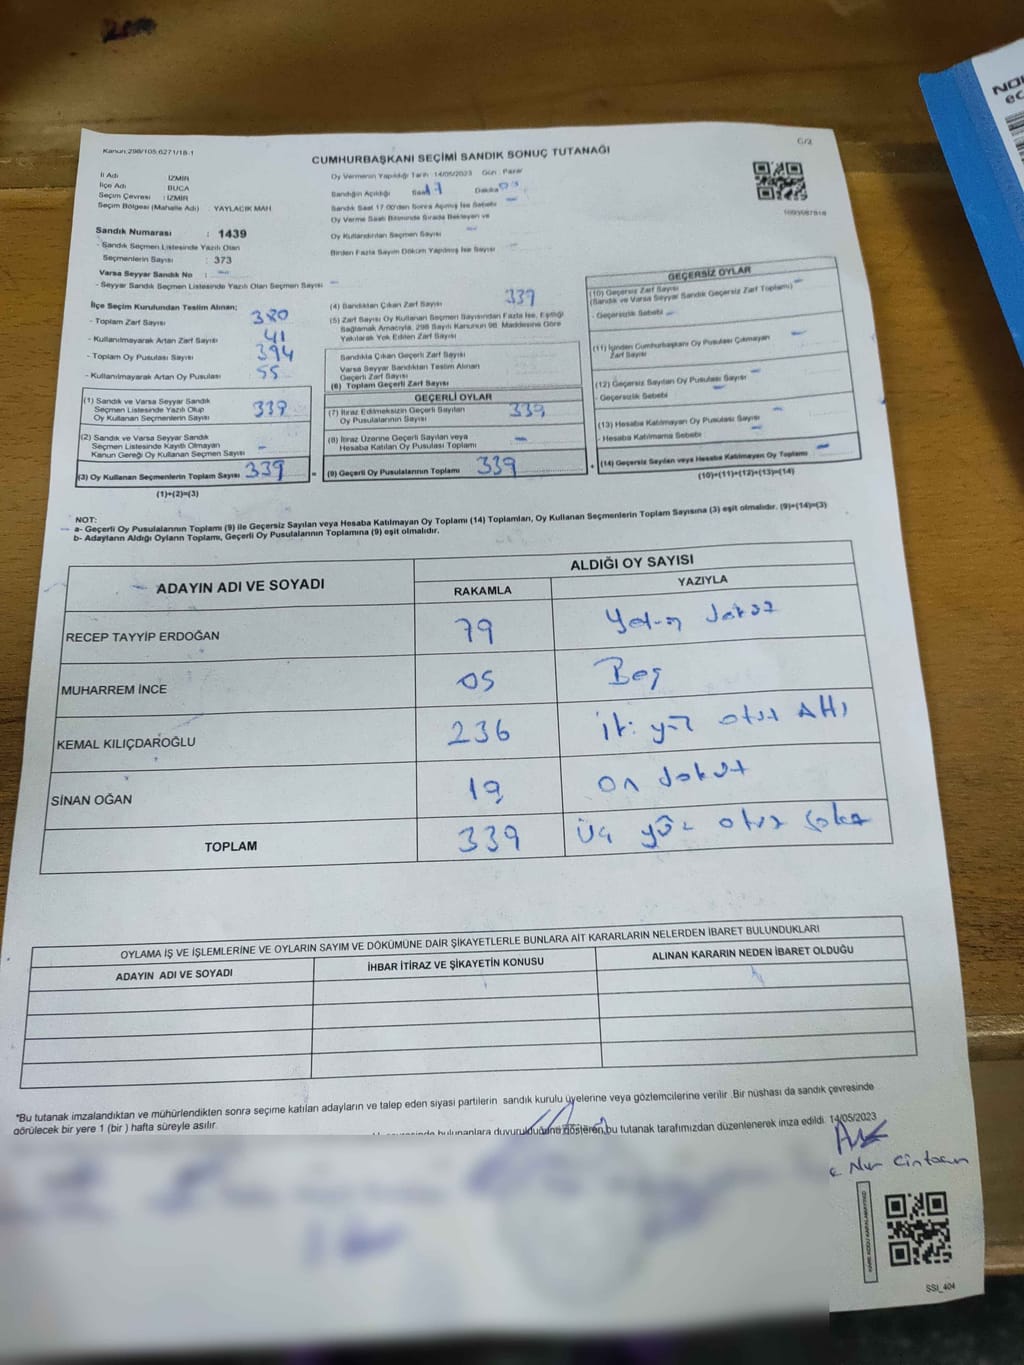 Kanun:298/105;6271/18-1
G/2
CUMHURBAŞKANI SEÇİMİ SANDIK SONUÇ TUTANAĞI
İl Adı : İZMİR
İlçe Adı : BUCA
Seçim Çevresi : İZMİR
Seçim Bölgesi (Mahalle Adı) : YAYLACIK MAH.
Sandık Numarası : 1439
- Sandık Seçmen Listesinde Yazılı Olan
Seçmenlerin Sayısı : 373
Varsa Seyyar Sandık No : -
- Seyyar Sandık Seçmen Listesinde Yazılı Olan Seçmen Sayısı -
Oy Vermenin Yapıldığı Tarih : 14/05/2023 Gün : Pazar
Sandığın Açıldığı Saat 17 Dakika 05
Sandık Saat 17.00'den Sonra Açılmış İse Sebebi -
Oy Verme Saati Bitiminde Sırada Bekleyen ve
Oy Kullandırılan Seçmen Sayısı -
Birden Fazla Sayım Döküm Yapılmış İse Sayısı -
İlçe Seçim Kurulundan Teslim Alınan;
- Toplam Zarf Sayısı 380
- Kullanılmayarak Artan Zarf Sayısı 41
- Toplam Oy Pusulası Sayısı 394
- Kullanılmayarak Artan Oy Pusulası 55
(1) Sandık ve Varsa Seyyar Sandık
Seçmen Listesinde Yazılı Olup
Oy Kullanan Seçmenlerin Sayısı 339
(2) Sandık ve Varsa Seyyar Sandık
Seçmen Listesinde Kayıtlı Olmayan
Kanun Gereği Oy Kullanan Seçmen Sayısı -
(3) Oy Kullanan Seçmenlerin Toplam Sayısı 339
(1)+(2)=(3)
(4) Sandıktan Çıkan Zarf Sayısı 339
(5) Zarf Sayısı Oy Kullanan Seçmen Sayısından Fazla İse, Eşitliği
Sağlamak Amacıyla, 298 Sayılı Kanunun 98. Maddesine Göre
Yakılarak Yok Edilen Zarf Sayısı
Sandıkta Çıkan Geçerli Zarf Sayısı
Varsa Seyyar Sandıktan Teslim Alınan
Geçerli Zarf Sayısı
(6) Toplam Geçerli Zarf Sayısı
GEÇERLİ OYLAR
(7) İtiraz Edilmeksizin Geçerli Sayılan
Oy Pusulalarının Sayısı 339
(8) İtiraz Üzerine Geçerli Sayılan veya
Hesaba Katılan Oy Pusulası Toplamı -
= (9) Geçerli Oy Pusulalarının Toplamı 339
GEÇERSİZ OYLAR
(10) Geçersiz Zarf Sayısı
(Sandık ve Varsa Seyyar Sandık Geçersiz Zarf Toplamı) -
- Geçersizlik Sebebi -
(11) İçinden Cumhurbaşkanı Oy Pusulası Çıkmayan
Zarf Sayısı -
(12) Geçersiz Sayılan Oy Pusulası Sayısı -
- Geçersizlik Sebebi -
(13) Hesaba Katılmayan Oy Pusulası Sayısı -
- Hesaba Katılmama Sebebi -
+ (14) Geçersiz Sayılan veya Hesaba Katılmayan Oy Toplamı -
(10)+(11)+(12)+(13)=(14)
NOT:
a- Geçerli Oy Pusulalarının Toplamı (9) ile Geçersiz Sayılan veya Hesaba Katılmayan Oy Toplamı (14) Toplamları, Oy Kullanan Seçmenlerin Toplam Sayısına (3) eşit olmalıdır. (9)+(14)=(3)
b- Adayların Aldığı Oyların Toplamı, Geçerli Oy Pusulalarının Toplamına (9) eşit olmalıdır.
ADAYIN ADI VE SOYADI
ALDIĞI OY SAYISI
RAKAMLA YAZIYLA
RECEP TAYYİP ERDOĞAN 79
MUHARREM İNCE 05 Beş
KEMAL KILIÇDAROĞLU 236 iki yüz otuz AltI
SİNAN OĞAN 19 on dokuz
TOPLAM 339 üç yüz otuz dokuz
OYLAMA İŞ VE İŞLEMLERİNE VE OYLARIN SAYIM VE DÖKÜMÜNE DAİR ŞİKAYETLERLE BUNLARA AİT KARARLARIN NELERDEN İBARET BULUNDUKLARI
ADAYIN ADI VE SOYADI İHBAR İTİRAZ VE ŞİKAYETİN KONUSU ALINAN KARARIN NEDEN İBARET OLDUĞU
*Bu tutanak imzalandıktan ve mühürlendikten sonra seçime katılan adayların ve talep eden siyasi partilerin sandık kurulu üyelerine veya gözlemcilerine verilir .Bir nüshası da sandık çevresinde
görülecek bir yere 1 (bir ) hafta süreyle asılır.
bulunanlara duyurulduğunu gösteren,bu tutanak tarafımızdan düzenlenerek imza edildi. 14/05/2023
SSİ_404